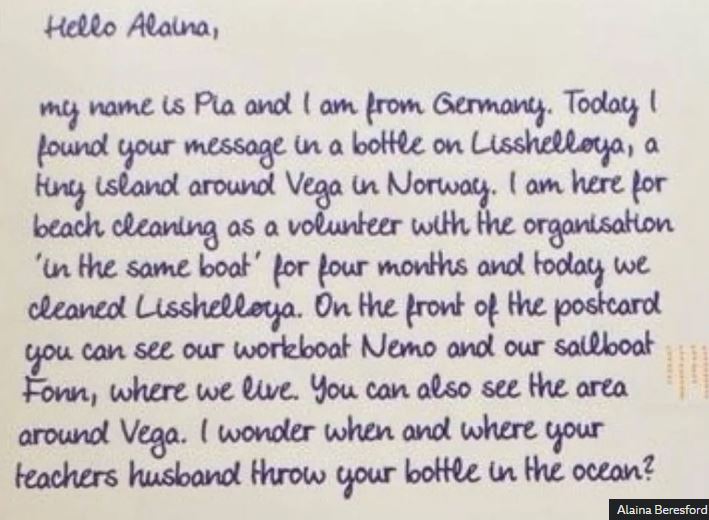 Hello Alaina,
my name is Pia and I am from Germany. Today I
found your message in a bottle on Lisshelløya, a
tiny island around Vega in Norway. I am here for
beach cleaning as a volunteer with the organisation
'in the same boat' for four months and today we
cleaned Lisshelløya. On the front of the postcard
you can see our workboat Nemo and our sailboat
Fonn, where we live. You can also see the area
around Vega. I wonder when and where your
teachers husband throw your bottle in the ocean?
Alaina Beresford